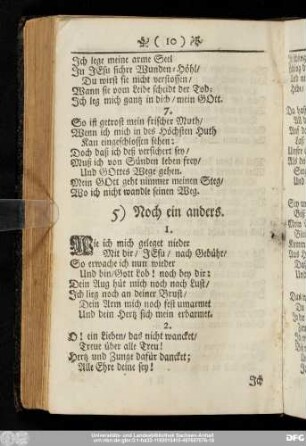 ( 10 )
Ich lege meine arme Seel
In JEsu sichre Wunden-Höhl/
Du wirst sie nicht verstossen/
Wann sie vom Leibe scheidt der Tod:
Ich leg mich gantz in dich/mein GOtt.
7.
So ist getrost mein frischer Muth/
Wenn ich mich in des Höchsten Huth
Kan eingeschlossen sehen:
Doch daß ich deß versichert sey/
Muß ich von Sünden leben frey/
Und GOttes Wege gehen.
Mein GOtt geht nimmer meinen Steg/
Wo ich nicht wandle seinen Weg.
5) Noch ein anders.
1.
Wie ich mich geleget nieder
Mit dir/ JEsu/ nach Gebühr/
So erwache ich nun wieder
Und bin/Gott Lob! noch bey dir:
Dein Aug hüt mich noch nach Lust/
Ich lieg noch an deiner Brust/
Dein Arm mich noch fest umarmet
Und dein Hertz sich mein erbarmet.
2.
O! ein Lieben/das nicht wancket/
Treue über alle Treu!
Hertz und Zunge dafür dancket;
Alle Ehre deine sey!
Ich
Universitäts- und Landesbibliothek Sachsen-Anhalt
DFG